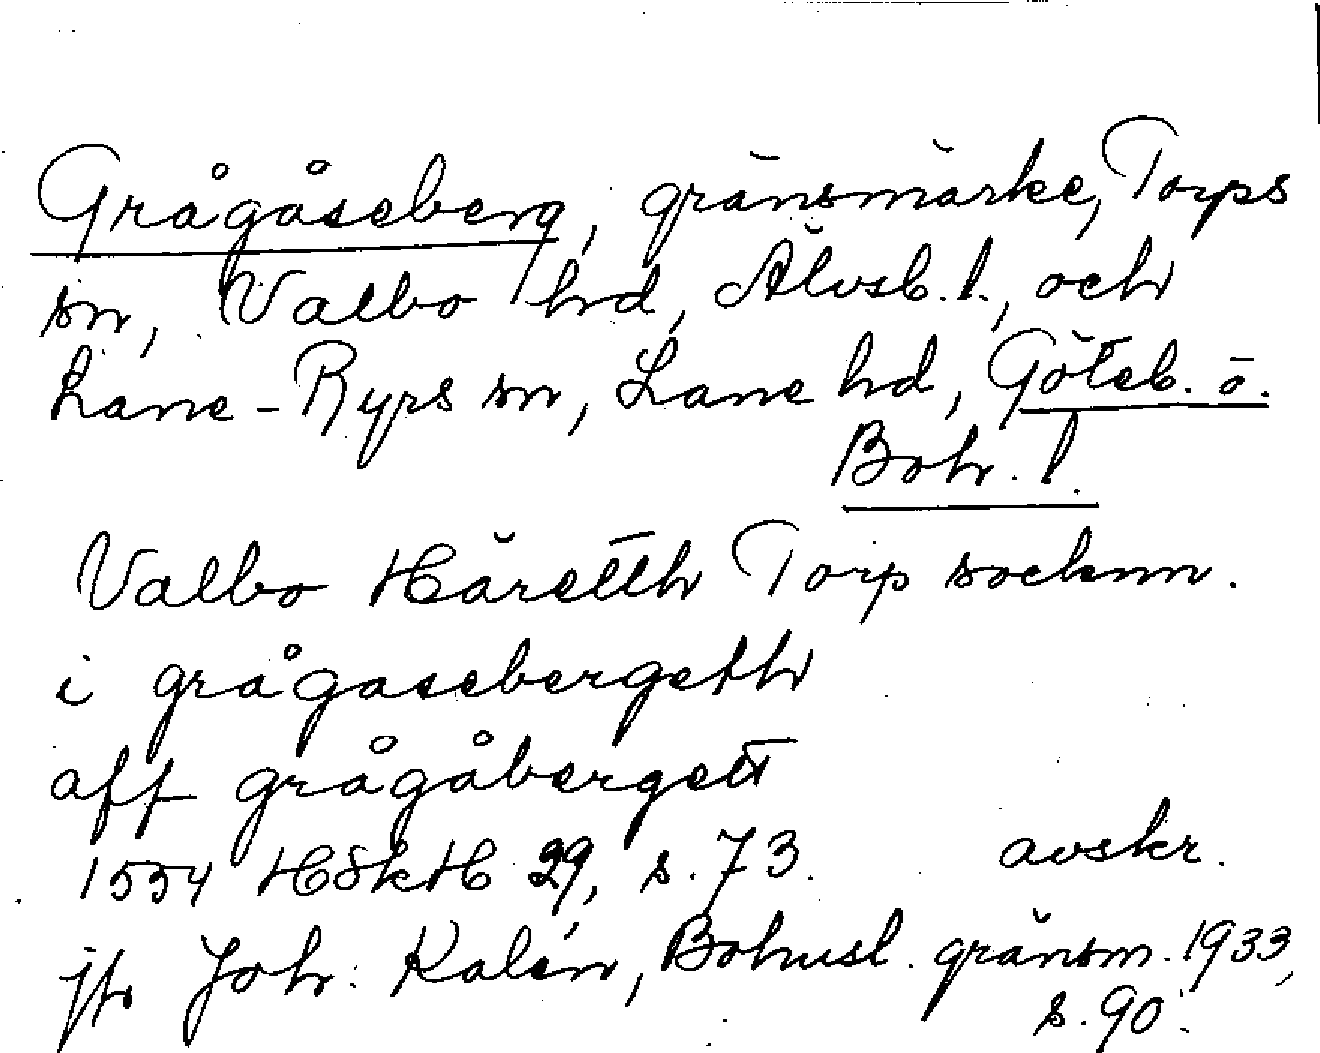 Grågåseberg, gränsmärke, Torps
sn, Valbo hd, Älvsb. l., och
Lane-Ryrs sn, Lane hd, Göteb. o.
Boh. l.
Valbo Häretth Torp socknn.
i grågasebergeth
aff grågåbergett
1554 HSkH 29, s. 73. avskr.
jfr Joh. Kalén, Bohusl. gränsm. 1933,
s. 90.